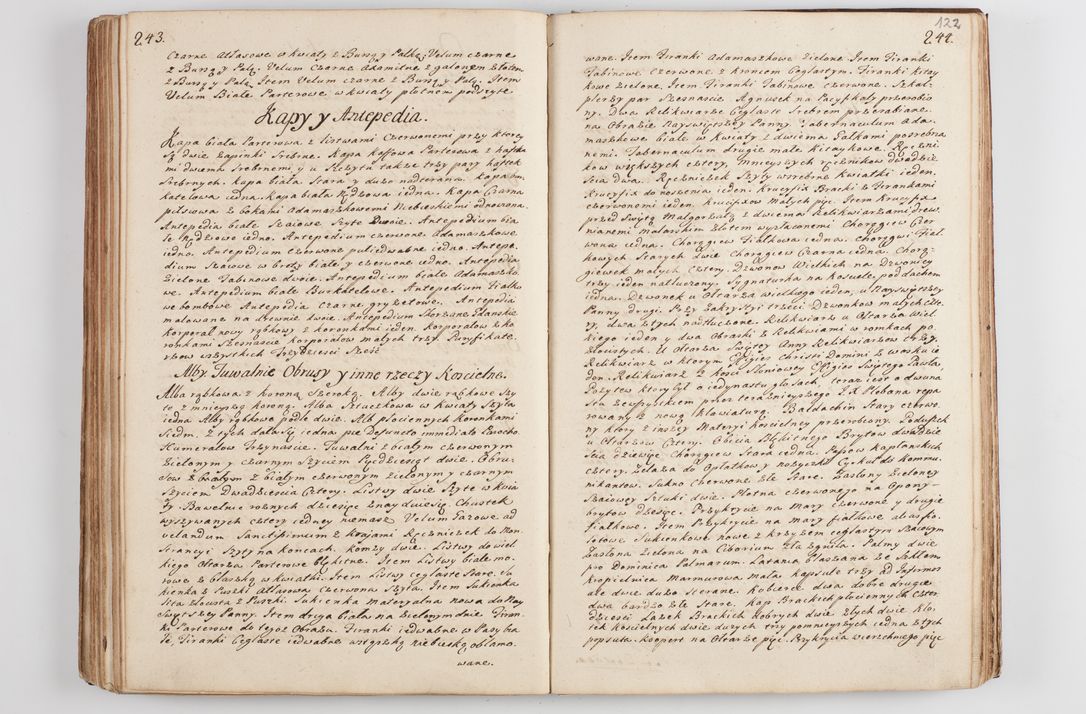 243.
Czarne Atłasowe w kwiaty z Bursą y Palką Velum czarne
z Bursą y Palą. Velum Czarne Adamitne z galonem złotem
z Bursą y Palą Item Velum czarne z Bursą y Palą. Item
Velum Białe Parterowe w kwiaty płotnem podszyte
Kapy y Antepedia.
Kapa biała Parterowa z listwami Czerwonemi przy ktorey
są dwie zapinki srebrne. Kapa kaffowa Parterowa z haftka
mi dwiema srebrnemi y u szczytu także trzy pary haftek
srebrnych. Kapa biała stara y dużo nadtarana. Kapa
katelowa iedna. Kapa biała nędzowa iedna. Kapa Czarna
pilsiowa z bokami Adamaszkowemi Niebieskiemi odnowiona
Antepedia białe Szaiowe Szyte dwoie. Antepedium bia
łe iedno. Antepedium czerwone Adamaszkowe
iedno. Antepedium czerwone pułiedwabne iedno. Antepe
dium Szaiowe w brozy białe y czerwone iedno. Antepedia
zielone Tabinowe dwoie. Antepedium białe Adamaszko
we. Antepedium białe Burkatelowe. Antepedium fiałko
we bombowe Antepedia czarne gryzetowe. Antepedia
malowane na drewnie dwie. Antepedium Skorzane Gdanskie
Korporał nowy rąbkowy z koronkami ieden. Korporałow z ko
ronkami Szesnascie korporałow małych trzy. Puryfikate
rzow wszystkich Trzydziesci Szesć
Alby, Tuwalnie Obrusy y inne rzeczy Koscielne.
Alba rąbkowa z koroną szeroką. Alby dwie rąbkowe Szy
te z mnieyszą koroną. Alba Sztuczkowa w kwiaty Szyta
iedna Alby rąbkowa podłe dwie. Alb płociennych koronkami
Siedm. z tych dała się iedna
Humerałow Trzynascie. Tuwalni z białym czerwonym
zielonym y czarnym Szyciem Pięcdziesiąt dwie. Obru
sow z białym czerwonym zielonym y czarnym
Szyciem Dwadziescia Cztery. Listwy dwie Szyte w kwia
ty. Bawełnice roznych dziesięc Chustek
wszywanych cztery iedney niemasz Velum Gazowe ad
velandum Sanctissimum z kraiami Ręczniczek do Mon
strancyi Szyty na koncach. Komży dwie. Listwy do wiel
kiego Ołtarza Parterowe błękitne. Item Listwy białe mo
rowe z blaszką w kwiatki. Item Listwy ceglaste stare. Su
kienka z Puszki Atłasowa Czerwona Szyta. Item Sukienka
lita złocista z Puszki. Sukienka materyalna nowa do Nay
swiętszey Panny. Item druga biała na zielonym dnie. Firan
ki Parterowe do tegoz Obrazu. Firanki iedwabne w Pasy bia
łe, Firanki Ceglaste iedwabne wstęgą niebieską oblamo
wane.
122
244.
wane. Item Firanki Adamaszkowe zielone. Item Firanki
Tabinowe Czerwone z koncem Ceglastym. Firanki kitay
kowe zielone. Item Firanki Tabinowe czerwone. Szkap
lerzy par Szesnascie. Agnusek na Pacyfikały przerobio
ny. Dwa Relikwiarze Ceglaste Srebrem przerabiane
na Obrazie Nayswiętszey Panny. Tabernaculum Ada
maszkowe białe w kwiaty z dwiema Gałkami posrebrza
nemi. Tabernaculum drugie małe Kitaykowe. Ręczni
kow większych cztery, mnieyszych ręcznikow dwadzie
scia dwa. Ręczniczek Szyty w srebrne kwiatki ieden.
Krucyfix do noszenia ieden. Krucyfix Bracki z Firankami
czerwonemi ieden. Krucifixow Małych pięć. Item Krucyfix
przed Swiętą Małgorzatą z dwiema Relikwiarzami drew
nianemi malarskim złotem wyzłacanemi Chorągiew Czer
wona iedna. Chorągiew Fiałkowa iedna. Chorągwi Fiał
kowych Starych dwie Chorągiew Czarna iedna. Chorą
giewek małych cztery. Dzwonow Wielkich na Dzwonicy
trzy ieden natłuczony. Sygnaturka na kosciele pod dachem
iedna. Dzwonek u Ołtarza wielkiego ieden, u Nayswiętszey
Panny drugi. Przy Zakrystyi trzeci. Dzwonkow małych czte
ry, dwa z tych nadtłuczone. Relikwiarz u Ołtarza Wiel
kiego ieden y dwa Obrazki z Relikwiami w romkach po
złocistych. U Ołtarza Swiętey Anny Relikwiarzow trzy.
Relikwiarz w ktorym Effigies Christi Domini z wosku ie
den. Relikwiarz z kosci słoniowey Effigies Swiętego Pawła.
Pozytyw ktory był o iedynastu głosach, teraz iest o dwuna
stu zewszystkiem przez teraznieyszego J. X. Plebana repa
rowany z nową klawiaturą. Baldachin Stary czerwo
ny ktory z inszey Materyi koscielney przerobiony. Poduszek
u Ołtarzow Cztery. Obicia błękitnego Brytow dwadzie
scia dziewięc chorągiew stara iedna. Pasow kapłanskich
cztery. Zelaza do Opłatkow y nożyczki Cyrkuł do Kommu
nikantow. Sukno czerwone złe stare. Zasłony zieloney
Szaiowey sztuki dwie. Płotna czerwonego na Opony
brytow dziesięc. Przykrycie na mary czerwone y drugie
fiałkowe. Item Przykrycie na mary fiałkowe abo fio
letowe Sukienkowe nowe z krzyzem ceglastym Szaiowym
Zasłona zielona na Ciborium zła zgniła. Palmy dwie
pro Dominica Palmarum. Latarnia blaszana ze szkłem
kropielnica Marmurowa mała kapsułe trzy ad Infirmos
ale dwie dużo starane. Kobierce dwa dobre drugie
dwa bardzo złe stare. Kap Brackich płociennych czter
dziesci Lasek Brackich dobrych dwie złych dwie klo
tek koscielnych dwie duzych trzy pomnieyszych iedna z tych
popsuta. Koopert na Ołtarze pięć. Przykrycia wierzchnego pięc